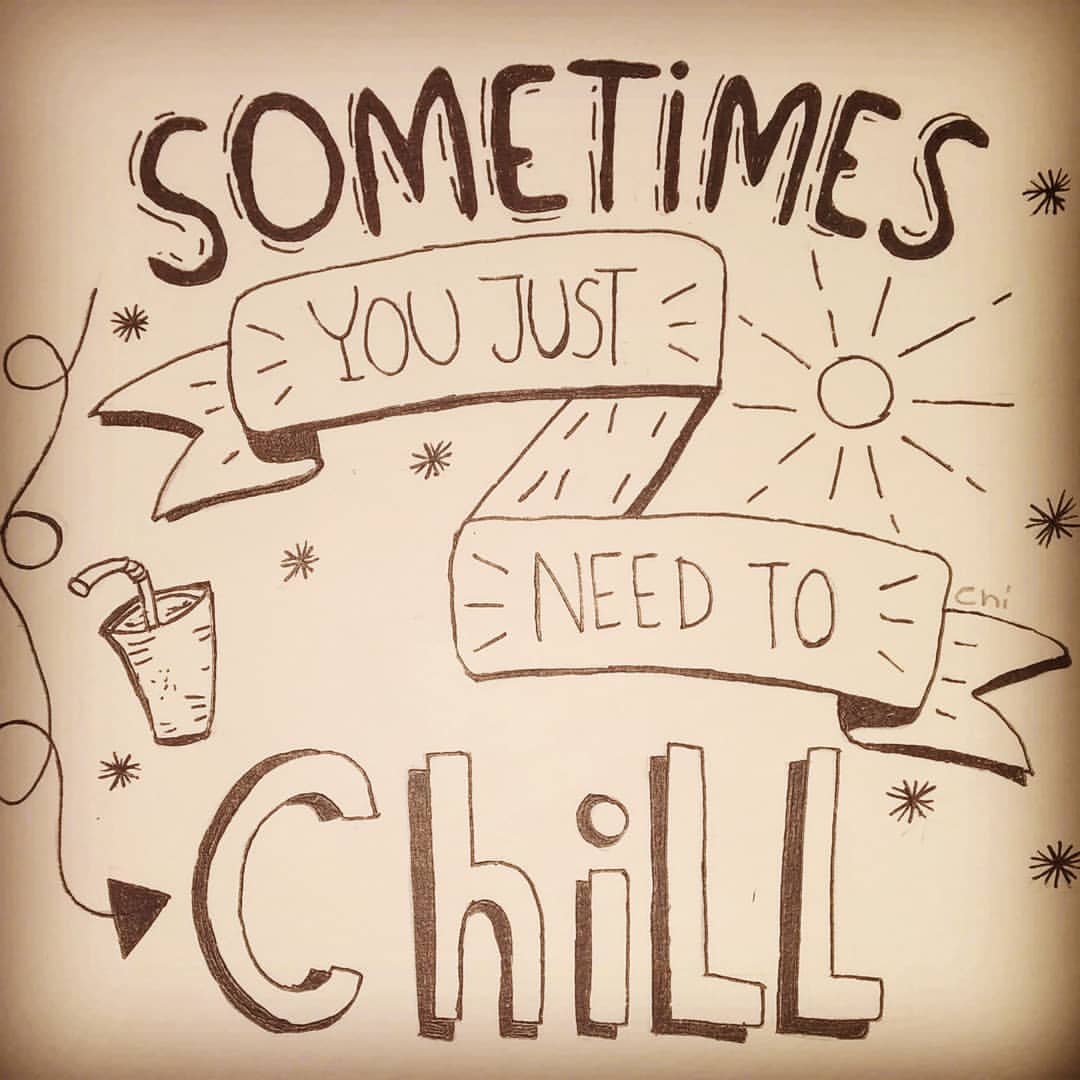 SOMETiMES
YOU JUST
NEED TO
chi
ChiLL